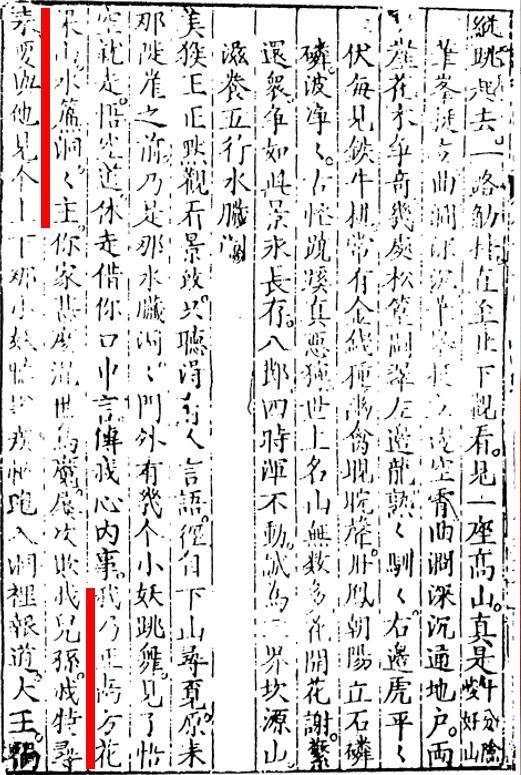 縱跳起去。一路觔抖直至北下觀看。見一座高山。真是十分險峻好山
筆峯挺立曲澗深沉筆峯挺立透空霄曲澗深沉通地戶。兩
崖花木爭奇幾處松篁鬬翠左邊龍熟〻馴〻右邊虎平〻
伏每見鉄牛耕常有金錢種幽禽睍睆聲丹鳳朝陽立石磷
磷波淨〻古怪蹺蹊真惡獰世上名山無數多花開花謝蘩
還衆爭如此景永長存。八節四時渾不動。誠為三界坎源山
滋養五行水臟洞
美猴王正默觀看景致只聽得有人言語。徑自下山尋覓原来
那陡崖之前。乃是那水臟洞〻門外有幾个小妖跳舞。見了悟
空就走。悟空道休走借你口中言。傳我心内事。我乃正南方花
果山水簾洞〻主。你家甚麽混世鳥魔。屢次欺我兒孫。我特尋
来要與他見个上下那小妖聽說疾忙跑入洞裡報道。大王。禍